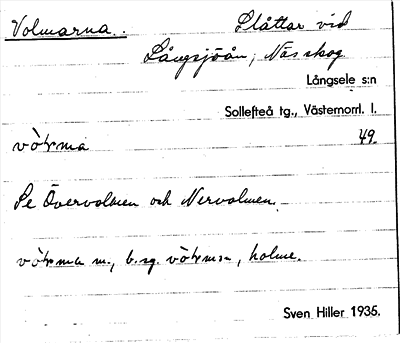 Volmarna. Slåttar vid
Långsjöån, Näs skog
Långsele s:n
Sollefteå tg., Västernorrl. l.
49.
Se Övervolmen och Nervolmen.
m., b.sg. holme.
Sven Hiller 1935.